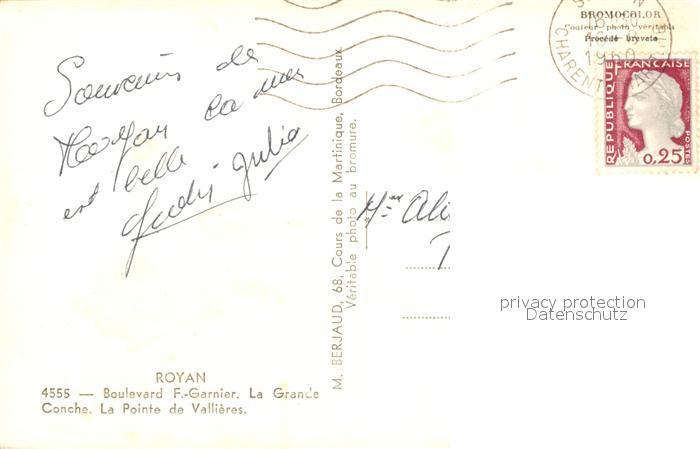 BROMOCOLOR
Couleur photo véritable
Procédé breveté
1960
CHARENTE MAR
REPUBLIQUE FRANÇAISE
0,25
POSTES
Souvenir de
Royan la mer
est belle
André Julia
Mme Ali
M. BERJAUD, 68, Cours de la Martinique, Bordeaux
Véritable photo au bromure.
privacy protection
Datenschutz
ROYAN
4555 — Boulevard F.-Garnier. La Grande
Conche. La Pointe de Vallières.